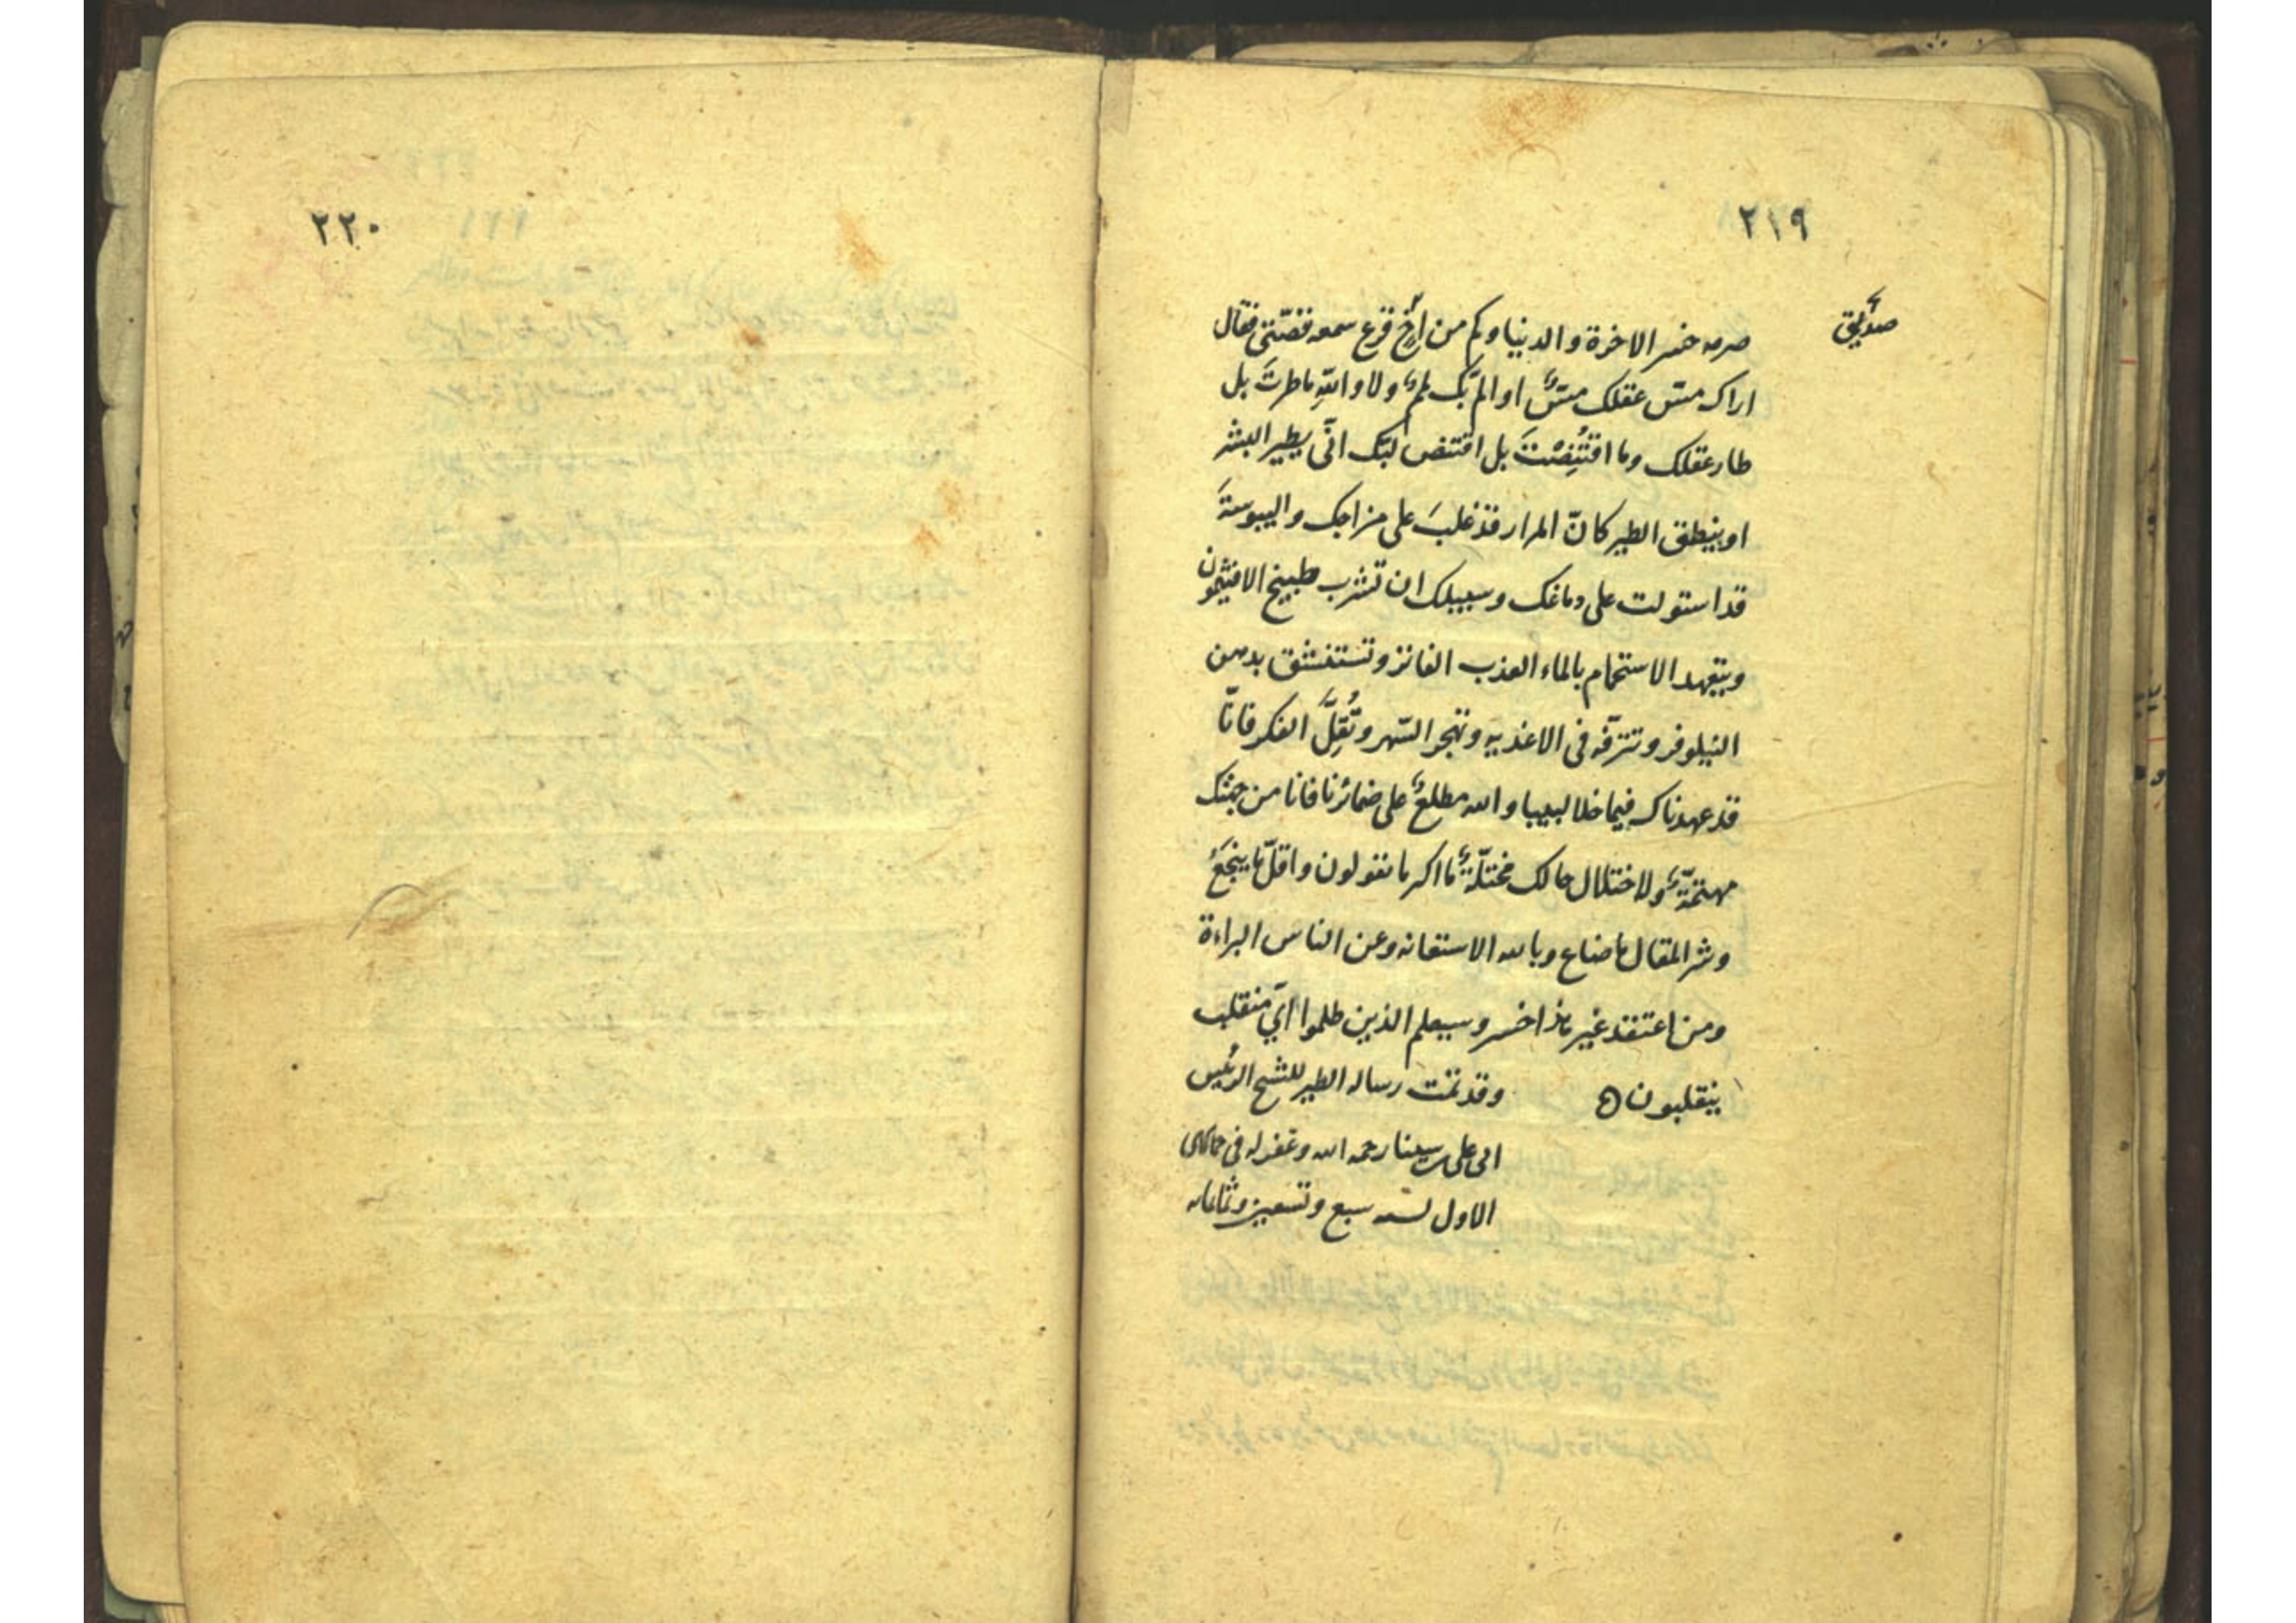 ٢١٩
صديق
صرمه خسر الاخرة والدنيا وكم من اخ قرع سمعه قصتى فقال
اراك مسّ عقلك مسٌّ او المّ بك لممٌ ولا واللهِ ما طرتَ بل
طار عقلك وما اقتُنِصْتَ بل اقتنص لبّك انّى يطير البشر
او ينطق الطير كانّ المرار قد غلبَ على مزاجك واليبوسةَ
قد استولت على دماغك وسبيلك ان تشرب طبيخ الافتيمون
ويتعهد الاستحمام بالماء العذب الفاتر وتستنشق بدهن
النيلوفر وتترفّه فى الاغذيه وتهجر السّهر وتُقِلَّ الفكر فانّا
قد عهدناك فيما خلا لبيبا والله مطلعٌ على ضمائرنا فانا من جهتك
مهتمّةٌ ولاختلال حالك مختلّةٌ ما اكثر ما تقولون واقلّ ما ينجَعُ
وشر المقال ما ضاع وبالله الاستعانه وعن الناس البراءة
ومن اعتقد غير هذا خسر وسيعلم الذين ظلموا اىّ منقلب
ينقلبون ه وقد تمت رساله الطير للشيخ الرئيس
ابى على سينا رحمه الله وغفر له فى جمادى
الاول لسنه سبع وتسعين وثمانمايه
٢٢٠